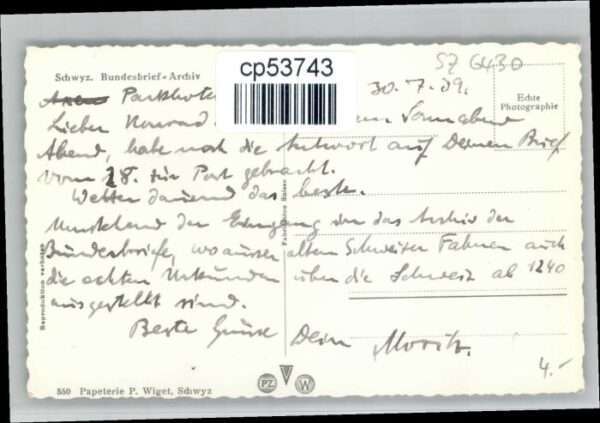 cp53743
SZ 6430
Schwyz. Bundesbrief-Archiv
Echte
Photographie
Parkhotel
30.7.09.
Lieber Konrad. Sonnabend
Abend, habe noch die Antwort auf Deinen Brief
vom 28. zur Post gebracht.
Wetter dauernd das beste.
Umstehend der Eingang in das Archiv der
Bundesbriefe, wo ausser alten Schweizer Fahnen auch
die echten Urkunden über die Schweiz ab 1240
ausgestellt sind.
Beste Grüsse Dein Moritz.
4.-
Reproduktion verboten
550 Papeterie P. Wiget, Schwyz
PZ
W